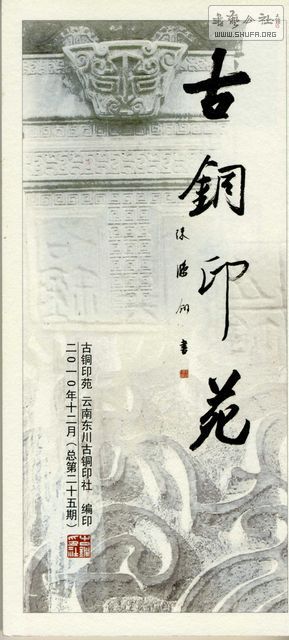 书艺公社
WWW.SHUFA.ORG
古銅印苑
书
古铜印苑 云南东川古铜印社 编印
二〇一〇年十二月（总第二十五期）